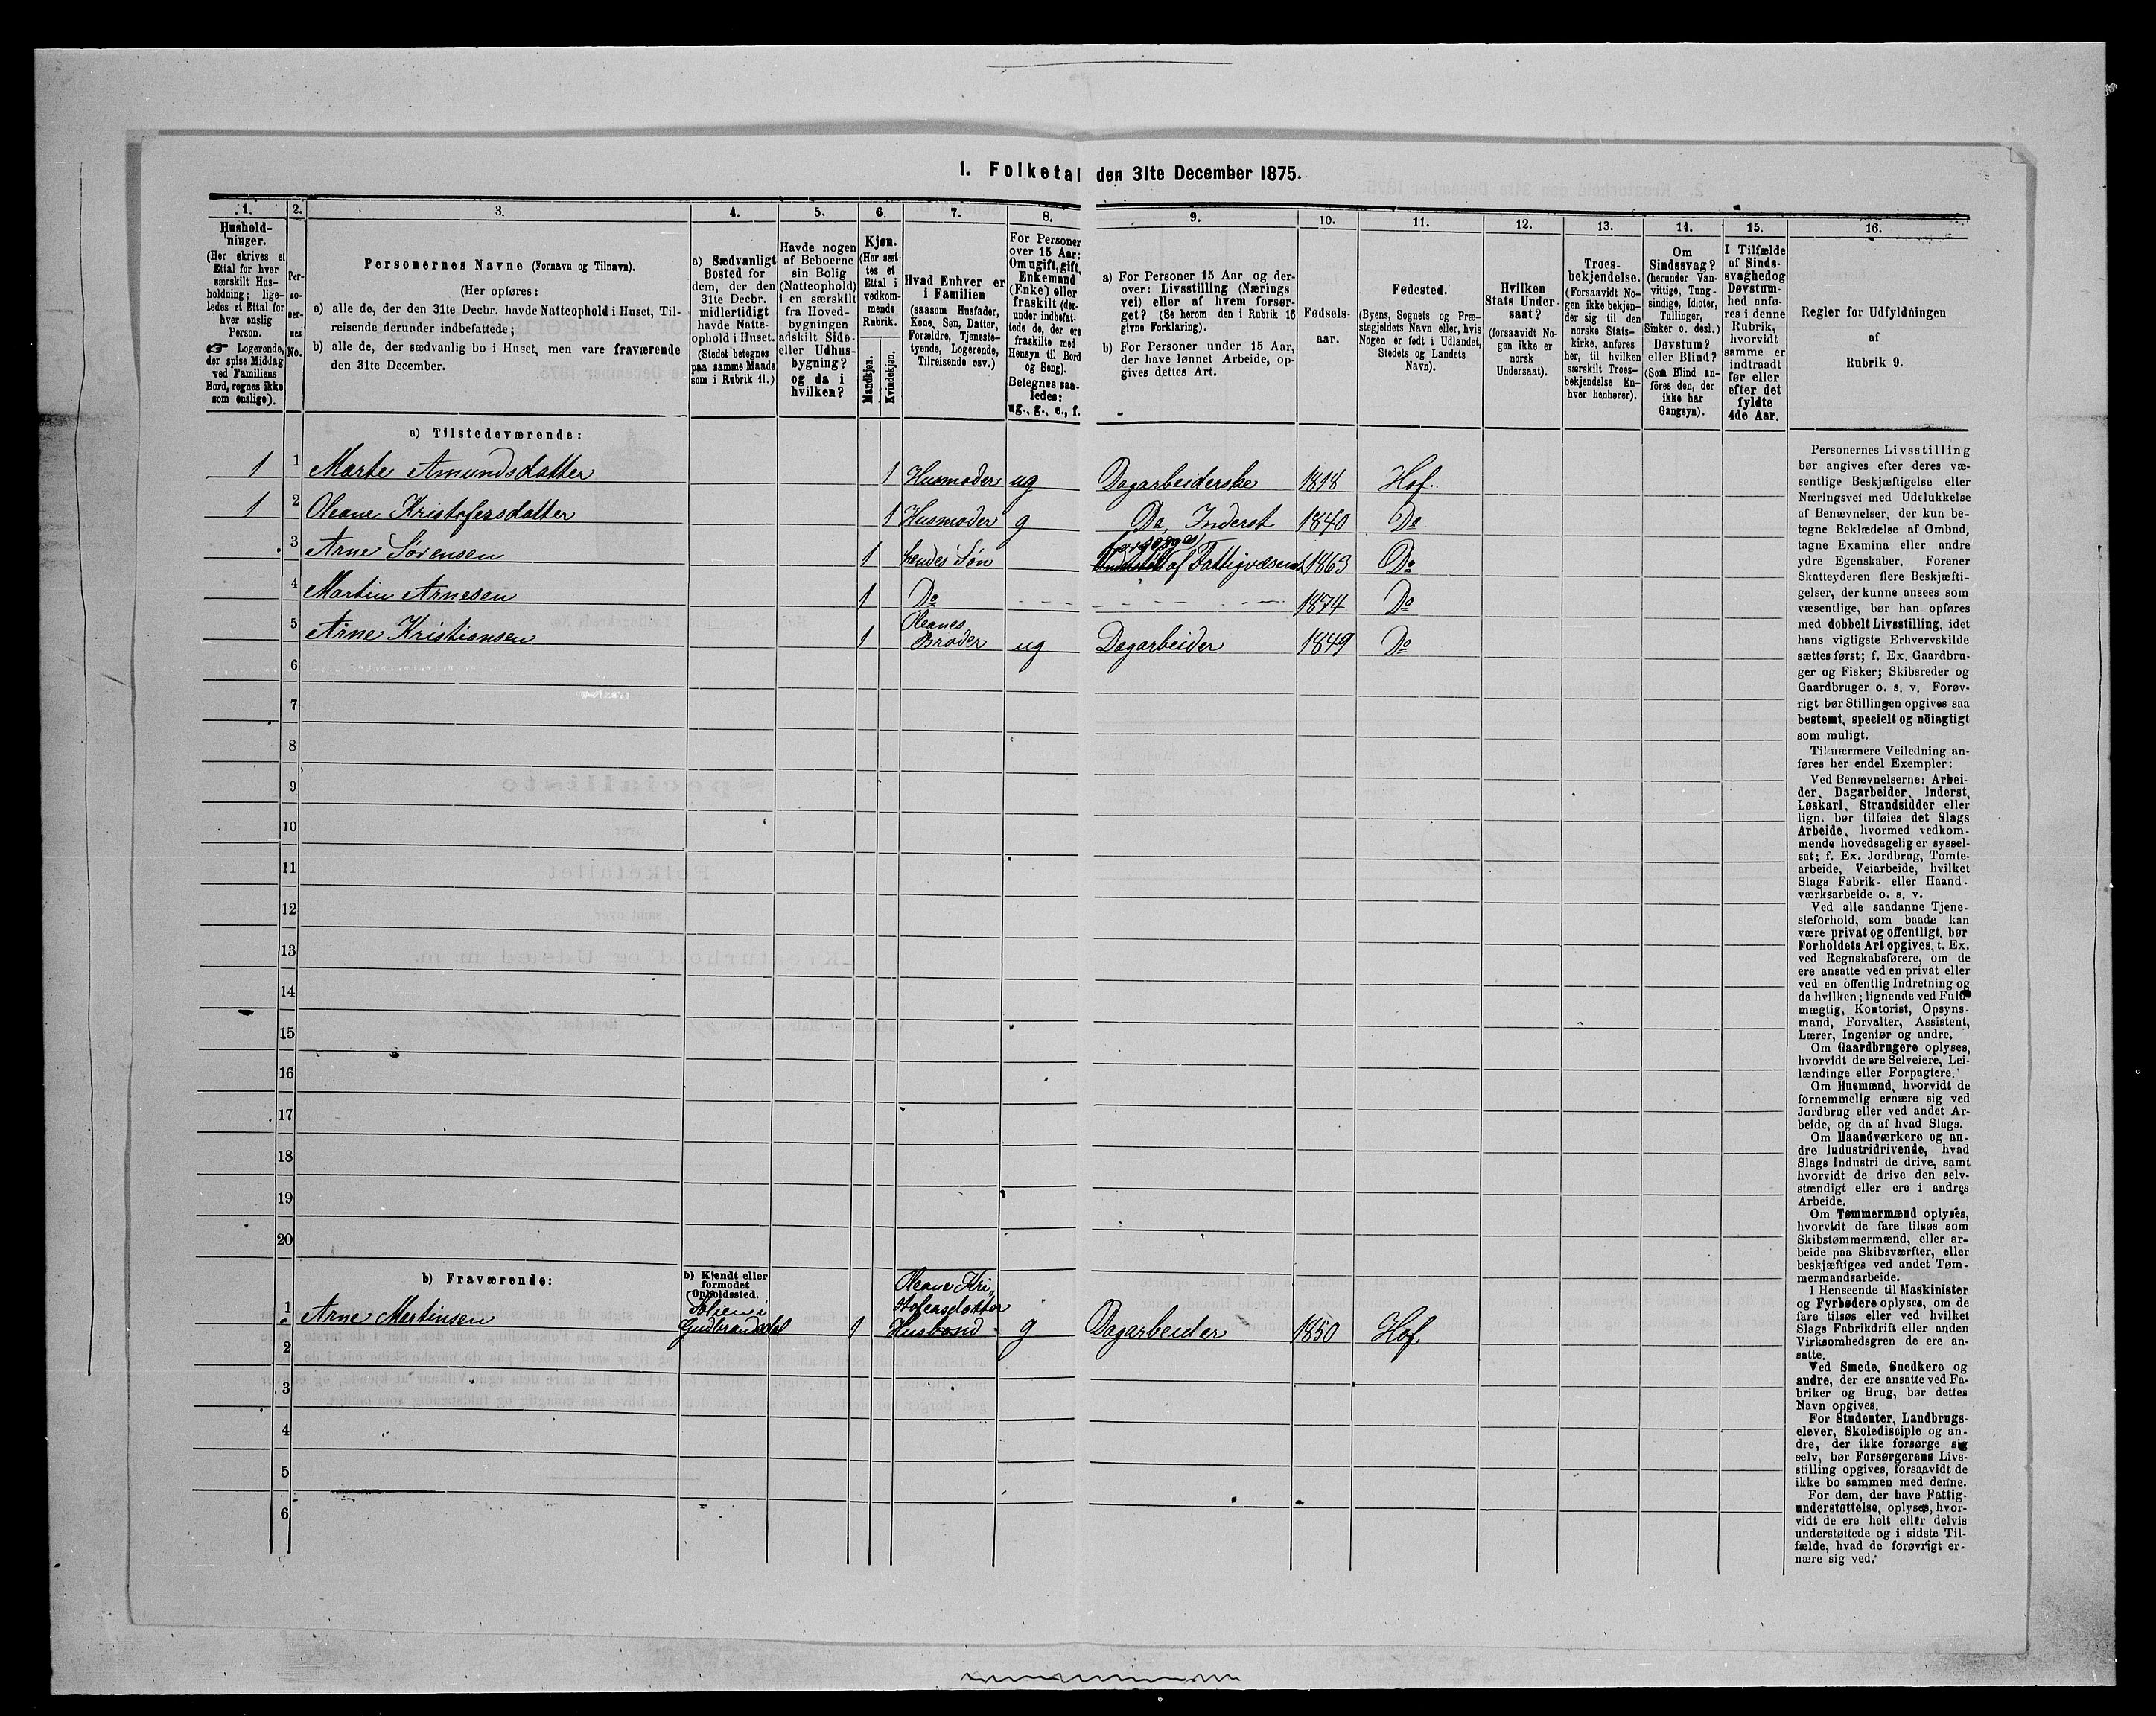 I. Folketal den 31te December 1875.
1. 2. 3. 4. 5. 6. 7. 8. 9. 10. 11. 12. 13. 14. 15. 16.
Hushold-
ninger.
(Her skrives et
Ettal for hver
særskilt Hus-
holdning; lige-
ledes et Ettal for
hver enslig
Person.
☞ Logerende,
der spise Middag
ved Familiens
Bord, regnes ikke
som enslige).
Per-
so-
ner-
nes
No.
Personernes Navne (Fornavn og Tilnavn).
(Her opføres:
a) alle de, der den 31te Decbr. havde Natteophold i Huset, Til-
reisende derunder indbefattede;
b) alle de, der sædvanlig bo i Huset, men vare fraværende
den 31te December.
a) Sædvanligt
Bosted for
dem, der den
31te Decbr.
midlertidigt
havde Natte-
ophold i Huset.
(Stedet betegnes
paa samme Maade
som i Rubrik 11.)
Havde nogen
af Beboerne
sin Bolig
(Natteophold)
i en særskilt
fra Hoved-
bygningen
adskilt Side-
eller Udhus-
bygning?
og da i
hvilken?
Kjøn.
(Her sæt-
tes et
Ettal i
vedkom-
mende
Rubrik.
Mandkjøn.
Kvindekjøn.
Hvad Enhver er
i Familien
(saasom Husfader,
Kone, Søn, Datter,
Forældre, Tjeneste-
tyende, Logerende,
Tilreisende osv.)
For Personer
over 15 Aar:
Om ugift, gift,
Enkemand
(Enke) eller
fraskilt (der-
under indbefat-
tede de, der ere
fraskilte med
Hensyn til Bord
og Seng).
Betegnes saa-
ledes:
ug., g., e., f.
a) For Personer 15 Aar og der-
over: Livsstilling (Nærings
vei) eller af hvem forsør-
get? (Se herom den i Rubrik 16
givne Forklaring).
b) For Personer under 15 Aar,
der have lønnet Arbeide, op-
gives dettes Art.
Fødsels-
aar.
Fødested.
(Byens, Sognets og Præ-
stegjeldets Navn eller, hvis
Nogen er født i Udlandet,
Stedets og Landets
Navn).
Hvilken
Stats Under-
saat?
(forsaavidt No-
gen ikke er
norsk
Undersaat).
Troes-
bekjendelse.
(Forsaavidt No-
gen ikke bekjen-
der sig til den
norske Stats-
kirke, anføres
her, til hvilken
særskilt Troes-
bekjendelse En-
hver henhører).
Om
Sindssvag?
(herunder Van-
vittige, Tung-
sindige, Idioter,
Tullinger,
Sinker o. desl.)
Døvstum?
eller Blind?
(Som Blind an-
føres den, der
ikke har
Gangsyn).
I Tilfælde
af Sinds-
svaghed og
Døvstum-
hed anfø-
res i denne
Rubrik,
hvorvidt
samme er
indtraadt
før eller
efter det
fyldte
4de Aar.
Regler for Udfyldningen
af
Rubrik 9.
a) Tilstedeværende:
1 1 Marte Amundsdatter 1 Husmoder ug Dagarbeiderske 1818 Hof.
1 2 Oleane Kristofersdatter 1 Husmoder g Do, Inderst 1840 Do
forsørges
3 Arne Sørensen 1 hendes Søn af Fattigvæsenet 1863 Do
4 Martin Arnesen 1 Do 1874 Do
Oleanes
5 Arne Kristiansen 1 Broder ug Dagarbeider 1849 Do
6
7
8
9
10
11
12
13
14
15
16
17
18
19
20
b) Fraværende:
b) Kjendt eller
formodet
Opholdssted.
Oleane Kri-
stofersdatter
1 Arne Martinsen Gudbrandsdal 1 Husbond g Dagarbeider 1850 Hof
2
3
4
5
6
Personernes Livsstilling
bør angives efter deres væ-
sentlige Beskjæftigelse eller
Næringsvei med Udelukkelse
af Benævnelser, der kun be-
tegne Beklædelse af Ombud,
tagne Examina eller andre
ydre Egenskaber. Forener
Skatteyderen flere Beskjæfti-
gelser, der kunne ansees som
væsentlige, bør han opføres
med dobbelt Livsstilling, idet
hans vigtigste Erhvervskilde
sættes først; f. Ex. Gaardbru-
ger og Fisker; Skibsreder og
Gaardbruger o. s. v. Forøv-
rigt bør Stillingen opgives saa
bestemt, specielt og nöiagtigt
som muligt.
Til nærmere Veiledning an-
føres her endel Exempler:
Ved Benævnelserne: Arbei-
der, Dagarbeider, Inderst,
Løskarl, Strandsidder eller
lign. bør tilføies det Slags
Arbeide, hvormed vedkom-
mende hovedsagelig er syssel-
sat; f. Ex. Jordbrug, Tomte-
arbeide, Veiarbeide, hvilket
Slags Fabrik- eller Haand-
værksarbeide o. s. v.
Ved alle saadanne Tjene-
steforhold, som baade kan
være privat og offentligt, bør
Forholdets Art opgives, t. Ex.
ved Regnskabsførere, om de
ere ansatte ved en privat eller
ved en offentlig Indretning og
da hvilken; lignende ved Fuld-
mægtig, Kontorist, Opsyns-
mand, Forvalter, Assistent,
Lærer, Ingeniør og andre.
Om Gaardbrugere oplyses,
hvorvidt de ere Selveiere, Lei-
lændinge eller Forpagtere.
Om Husmænd, hvorvidt de
fornemmelig ernære sig ved
Jordbrug eller ved andet Ar-
beide, og da af hvad Slags.
Om Haandværkere og an-
dre Industridrivende, hvad
Slags Industri de drive, samt
hvorvidt de drive den selv-
stændigt eller ere i andres
Arbeide.
Om Tømmermænd oplyses,
hvorvidt de fare tilsøs som
Skibstømmermænd, eller ar-
beide paa Skibsværfter, eller
beskjæftiges ved andet Tøm-
mermandsarbeide.
I Henseende til Maskinister
og Fyrbødere oplyses, om de
fare tilsøs eller ved hvilket
Slags Fabrikdrift eller anden
Virksomhedsgren de ere an-
satte.
Ved Smede, Snedkere og
andre, der ere ansatte ved Fa-
briker og Brug, bør dettes
Navn opgives.
For Studenter, Landbrugs-
elever, Skoledisciple og an-
dre, der ikke forsørge sig
selv, bør Forsørgerens Livs-
stilling opgives, forsaavidt de
ikke bo sammen med denne.
For dem, der have Fattig-
understøttelse, oplyses, hvor-
vidt de ere helt eller delvis
understøttede og i sidste Til-
fælde, hvad de forøvrigt er-
nære sig ved.